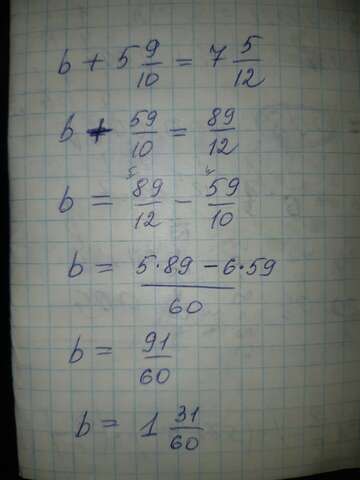 b + 5 9/10 = 7 5/12
b + 59/10 = 89/12
b = 89/12 - 59/10
b = (5·89 - 6·59)/60
b = 91/60
b = 1 31/60